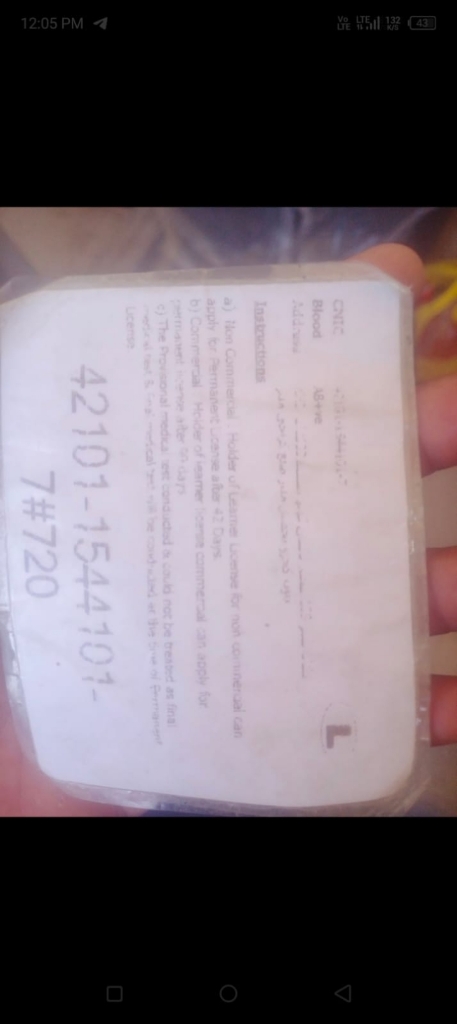 12:05 PM
Vo LTE LTE 132 K/S 43
CNIC
Blood AB+ve
Address
L
Instructions
a) Non Commercial Holder of Learner License for non commercial can
apply for Permanent License after 42 Days
b) Commercial Holder of learner license commercial can apply for
permanent license after 90 days
c) The Provisional medical test conducted is could not be treated as final
medical test & final medical test will be conducted at the time of Permanent
License
42101-1544101-
7#720